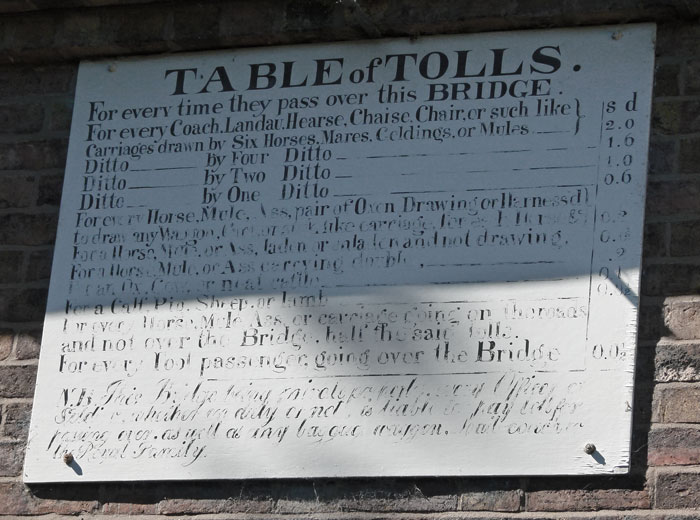 TABLE of TOLLS.
For every time they pass over this BRIDGE.
For every Coach, Landau, Hearse, Chaise, Chair, or such like } s d
Carriages drawn by Six Horses, Mares, Geldings, or Mules 2.0
Ditto by Four Ditto 1.6
Ditto by Two Ditto 1.0
Ditto by One Ditto 0.6
For every Horse, Mule, Ass, pair of Oxen Drawing or Harness'd
to draw any Waggon, like carriage, for each Horse &c 0.2
For a Horse, Mule, or Ass, laden or and not drawing,
For a Horse, Mule, or Ass carrying double, .2
Ox, Cow, or neat cattle
For a Calf, Pig, Sheep, or lamb
For every Horse, Mule, Ass, or carriage going on the roads
and not over the Bridge, half the said tolls.
For every foot passenger going over the Bridge 0.0½
N.B. This Bridge being private property, every Officer or
Soldier, whether on duty or not, is liable to pay toll for
passing over, as well as any baggage waggon,
the Royal Family.